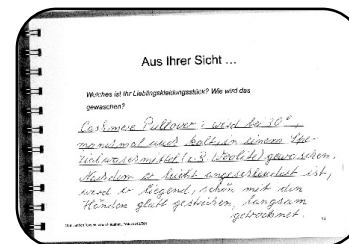 Aus Ihrer Sicht ...
Welches ist Ihr Lieblingskleidungsstück? Wie wird das
gewaschen?
Cashmere Pullover: wird bei 30°,
manchmal auch kalt, in einem Spe-
zialwaschmittel (z.B. Woolite) gewaschen.
Nachdem er leicht angeschleudert ist,
wird er liegend, schön mit den
Händen glatt gestrichen, langsam
getrocknet.